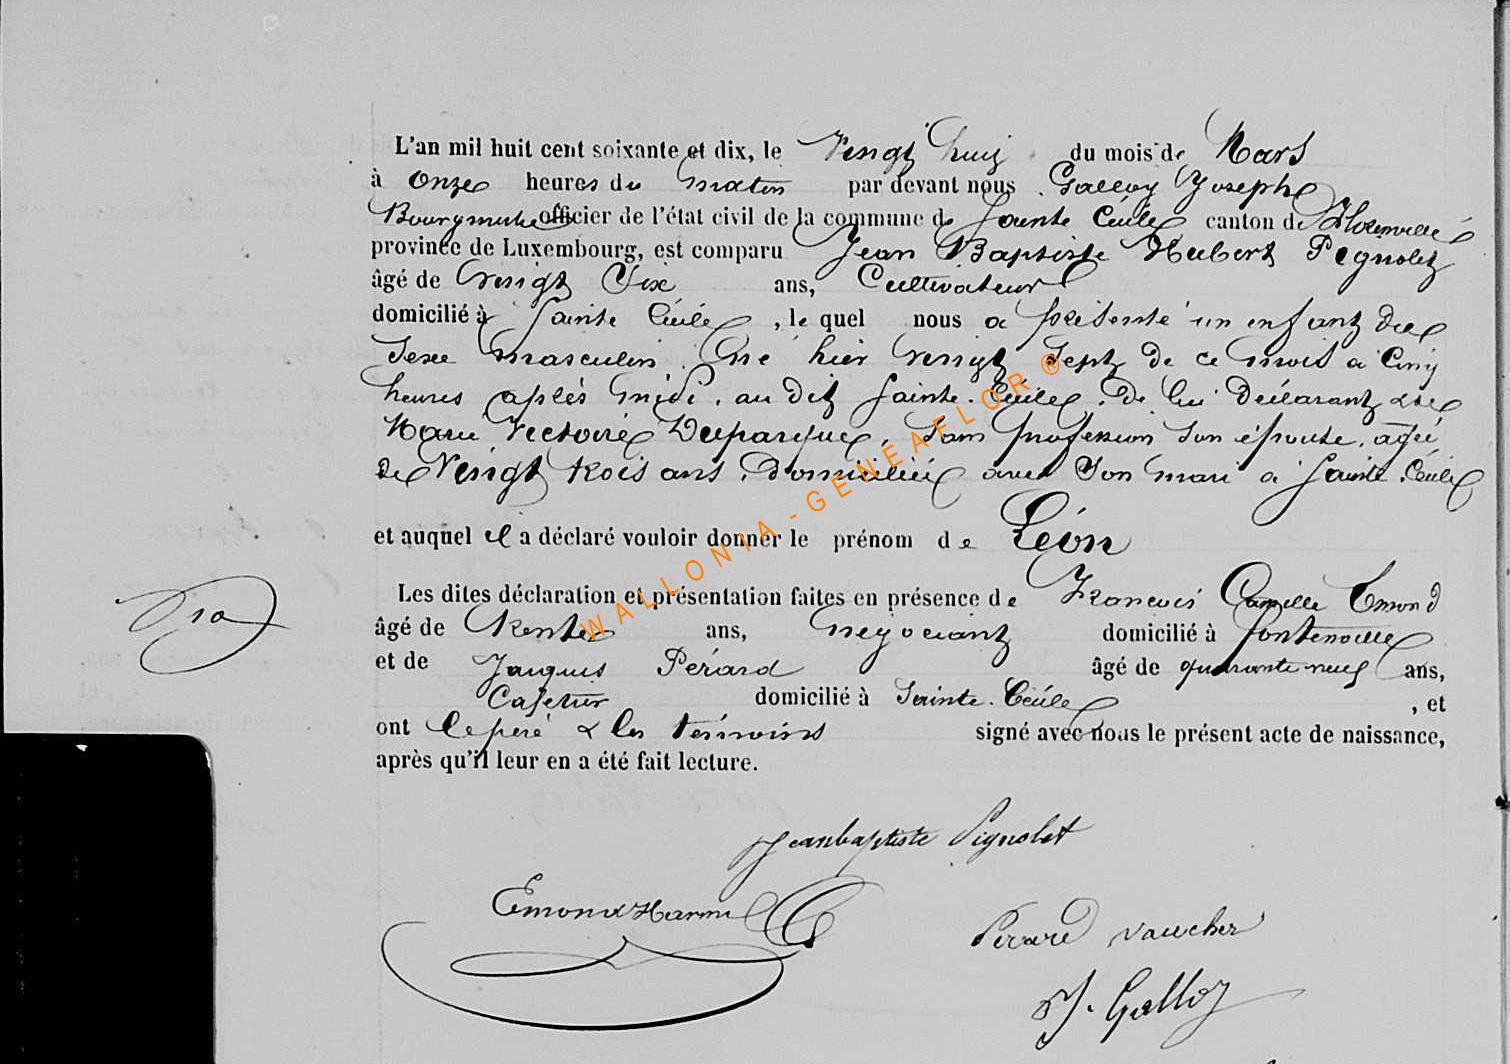 L'an mil huit cent soixante et dix, le Vingt huit du mois de Mars
à Onze heures du matin par devant nous Galloy Joseph
Bourgmestre officier de l'état civil de la commune de Sainte Cécile canton de Florenville
province de Luxembourg, est comparu Jean Baptiste Hubert Pignolet
âgé de Vingt Six ans, Cultivateur
domicilié à Sainte Cécile, le quel nous a présenté un enfant du
Sexe masculin. Né hier vingt Sept de ce mois à Cinq
heures après midi, au dit Sainte-Cécile, de lui Déclarant & de
Marie Victoire Duparque, Sans profession Son épouse, agée
de Vingt trois ans, Domiciliée avec Son mari à Sainte-Cécile
et auquel il a déclaré vouloir donner le prénom de Léon
Les dites déclaration et présentation faites en présence de François Camille Emond
âgé de Trente ans, négociant domicilié à fontenoille
et de Jacques Pérard âgé de quarante neuf ans,
Cafetier domicilié à Sainte-Cécile, et
ont le père & les témoins signé avec nous le présent acte de naissance,
après qu'il leur en a été fait lecture.
Jeanbaptiste Pignolet
Emond
Perard vaucher
J. Galloy
WALLONIA-GENEAFLOR®